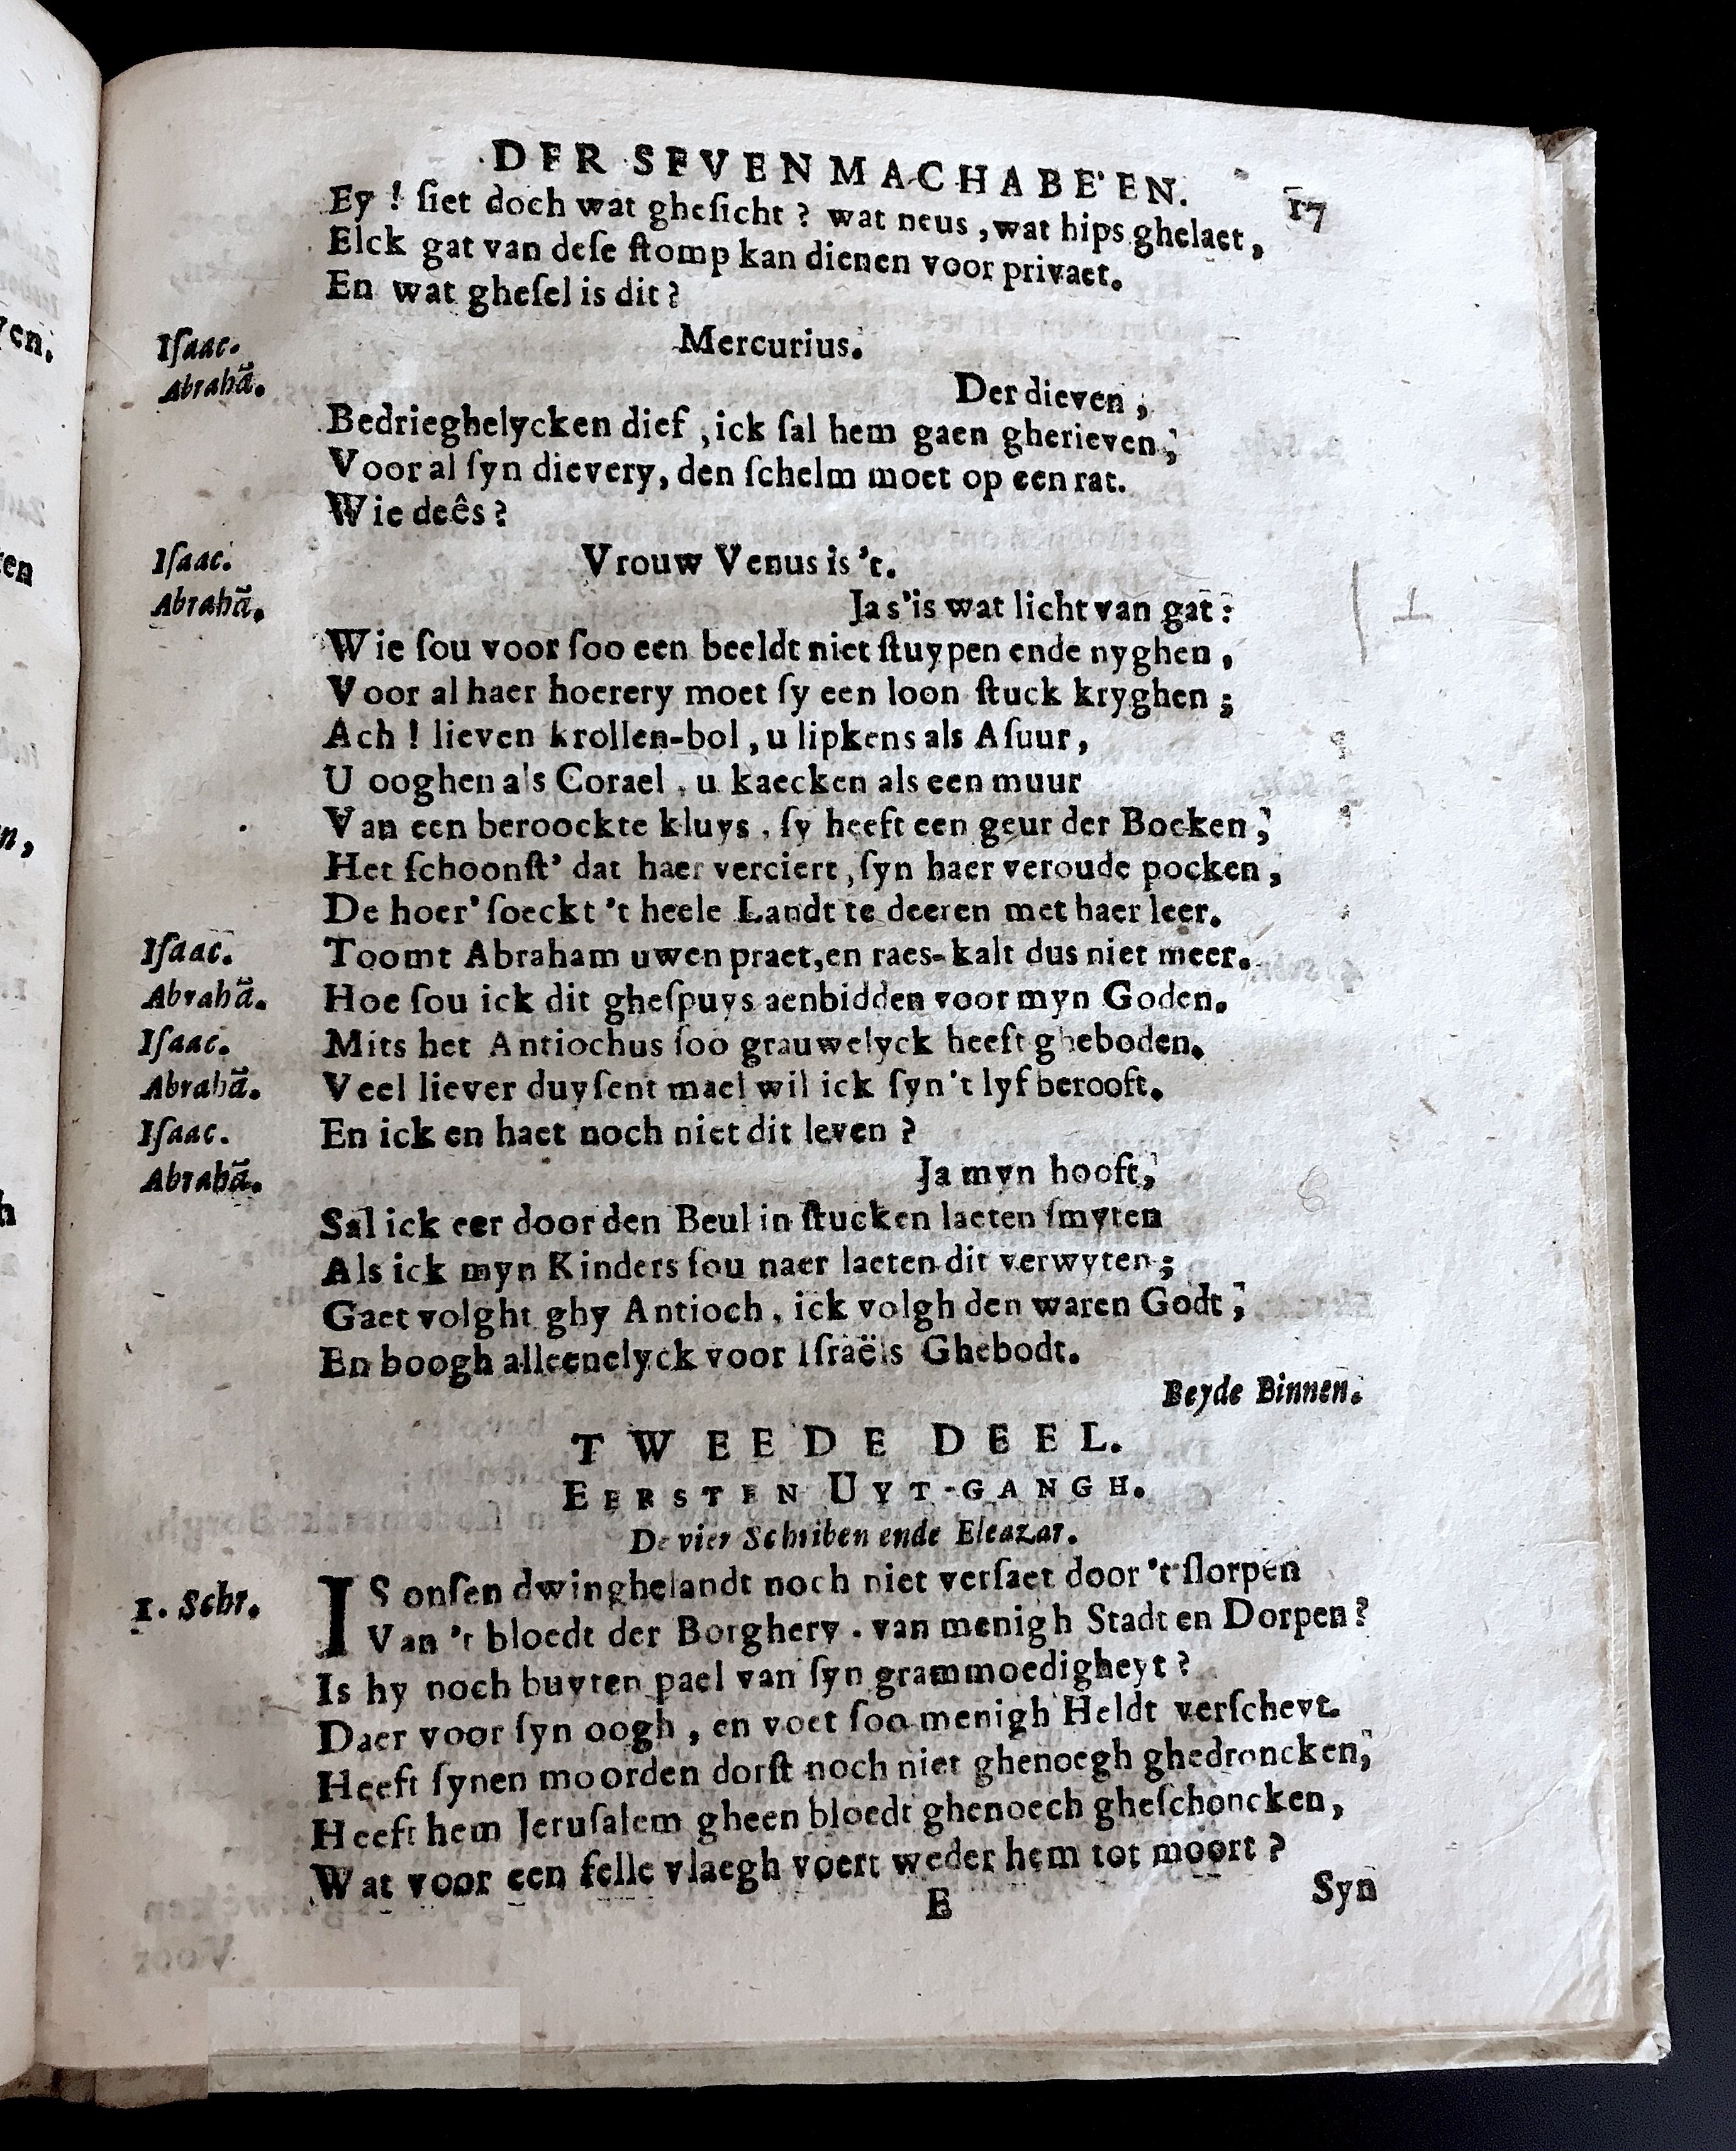 DER SEVEN MACHABE'EN. 17
Ey ! ſiet doch wat gheſicht ? wat neus , wat hips ghelaet ,
Elck gat van deſe ſtomp kan dienen voor privaet.
En wat gheſel is dit ?
Iſaac. Mercurius.
Abrahā. Der dieven ,
Bedrieghelycken dief , ick ſal hem gaen gherieven ,
Voor al ſyn dievery, den ſchelm moet op een rat.
Wie deês ?
Iſaac. Vrouw Venus is 't.
Abrahā. Ja s'is wat licht van gat :
Wie ſou voor ſoo een beeldt niet ſtuypen ende nyghen ,
Voor al haer hoerery moet ſy een loon ſtuck kryghen ;
Ach ! lieven krollen-bol , u lipkens als Aſuur ,
U ooghen als Corael , u kaecken als een muur
Van een beroockte kluys , ſy heeft een geur der Bocken ,
Het ſchoonſt' dat haer verciert , ſyn haer veroude pocken ,
De hoer' ſoeckt 't heele Landt te deeren met haer leer.
Iſaac. Toomt Abraham uwen praet, en raes-kalt dus niet meer.
Abrahā. Hoe ſou ick dit gheſpuys aenbidden voor myn Goden.
Iſaac. Mits het Antiochus ſoo grauwelyck heeft gheboden.
Abrahā. Veel liever duyſent mael wil ick ſyn 't lyf berooft.
Iſaac. En ick en haet noch niet dit leven ?
Abrahā. Ja myn hooft,
Sal ick eer door den Beul in ſtucken laeten ſmyten
Als ick myn Kinders ſou naer laeten dit verwyten ;
Gaet volght ghy Antioch , ick volgh den waren Godt ,
En boogh alleenelyck voor Iſraëls Ghebodt.
Beyde Binnen.
TWEEDE DEEL.
EERSTEN UYT-GANGH.
De vier Schriben ende Eleazar.
1. Schr. IS onſen dwinghelandt noch niet verſaet door 't ſlorpen
Van 't bloedt der Borghery . van menigh Stadt en Dorpen ?
Is hy noch buyten pael van ſyn grammoedigheyt ?
Daer voor ſyn oogh , en voet ſoo menigh Heldt verſcheyt.
Heeft ſynen moorden dorſt noch niet ghenoegh ghedroncken,
Heeft hem Jeruſalem gheen bloedt ghenoech gheſchoncken,
Wat voor een felle vlaegh voert weder hem tot moort ?
E Syn